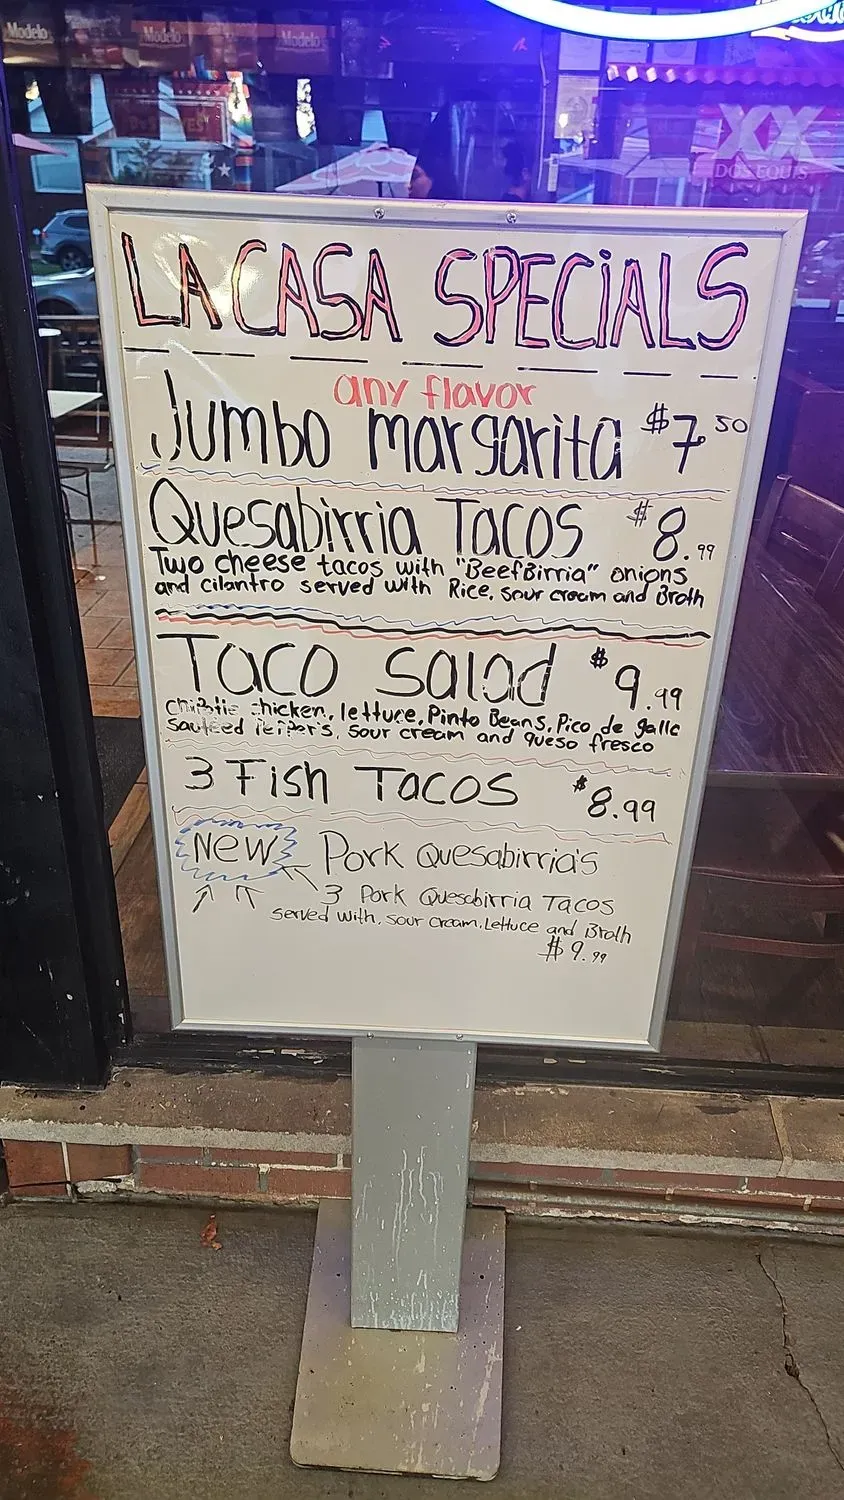 Modelo
Modelo
Modelo
XX
DOS EQUIS
LA CASA SPECiALS
any flavor
Jumbo margarita $7.50
Quesabirria Tacos $8.99
Two cheese tacos with "Beef Birria" onions
and cilantro served with Rice, sour cream and Broth
Taco Salad $9.99
chipotle chicken, lettuce, Pinto Beans, Pico de gallo
Sauteed Pepper's, sour cream and queso fresco
3 Fish Tacos $8.99
New Pork Quesabirria's
3 Pork Quesabirria Tacos
served with, sour cream, Lettuce and Broth
$9.99